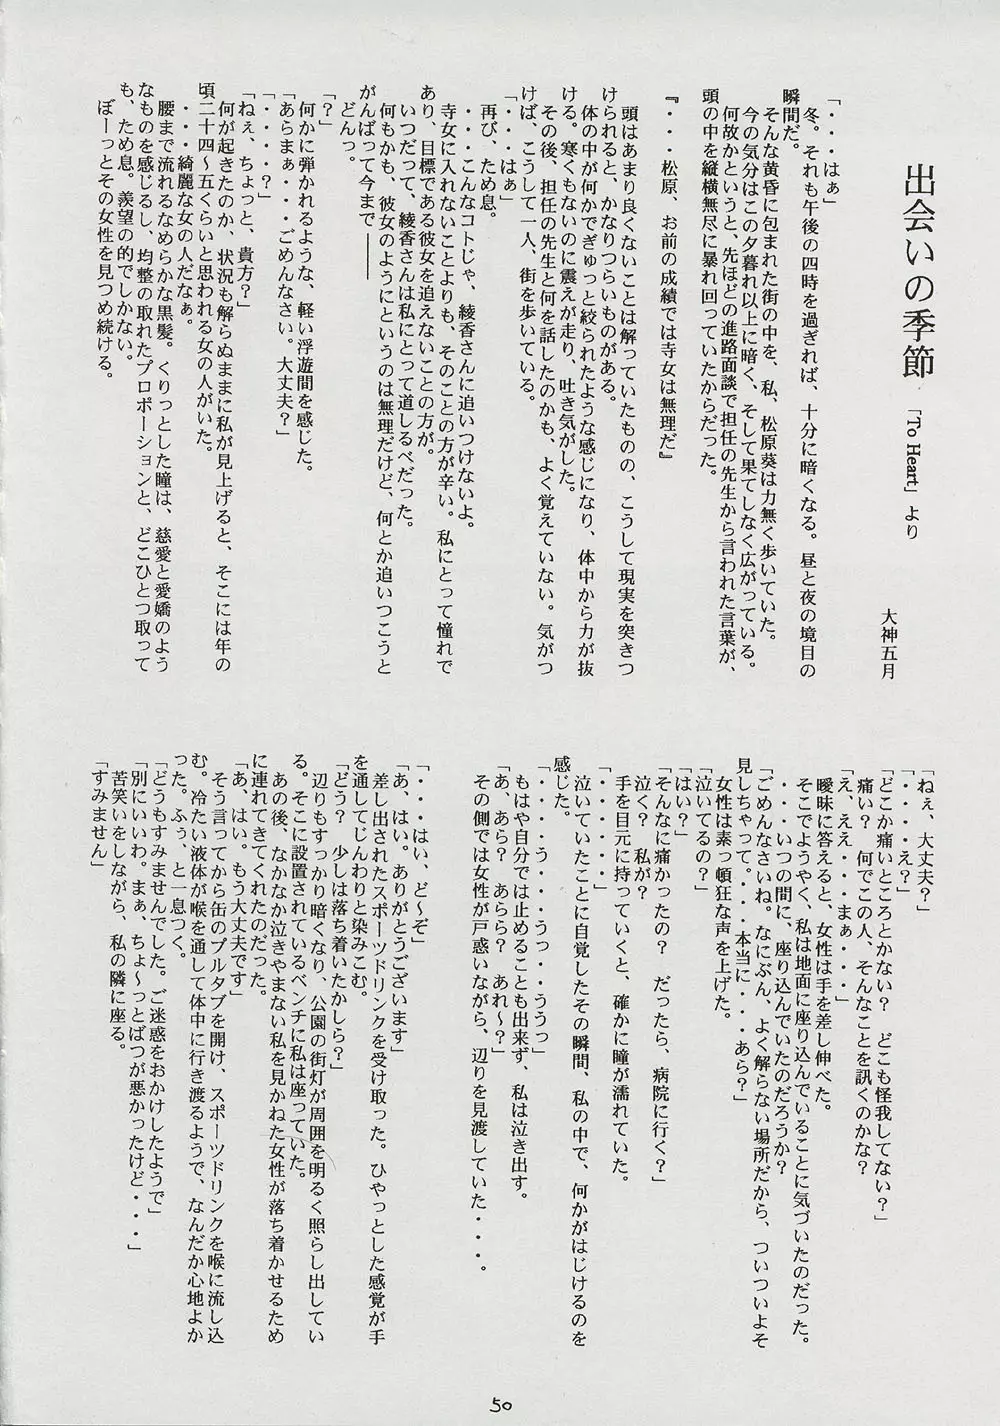 出会いの季節 「To Heart」より
大神五月
「・・・はぁ」
冬。それも午後の四時を過ぎれば、十分に暗くなる。昼と夜の境目の
瞬間だ。
そんな黄昏に包まれた街の中を、私、松原葵は力無く歩いていた。
今の気分はこの夕暮れ以上に暗く、そして果てしなく広がっている。
何故かというと、先ほどの進路面談で担任の先生から言われた言葉が、
頭の中を縦横無尽に暴れ回っていたからだった。
『・・・松原、お前の成績では寺女は無理だ』
頭はあまり良くないことは解っていたものの、こうして現実を突きつ
けられると、かなりつらいものがある。
体の中が何かでぎゅっと絞られたような感じになり、体中から力が抜
ける。寒くもないのに震えが走り、吐き気がした。
その後、担任の先生と何を話したのかも、よく覚えていない。気がつ
けば、こうして一人、街を歩いている。
「・・・はぁ」
再び、ため息。
・・・こんなコトじゃ、綾香さんに追いつけないよ。
寺女に入れないことよりも、そのことの方が辛い。私にとって憧れで
あり、目標である彼女を追えないことの方が。
いつだって、綾香さんは私にとって道しるべだった。
何もかも、彼女のようにというのは無理だけど、何とか追いつこうと
がんばって今まで――――
どんっ。
「？」
何かに弾かれるような、軽い浮遊間を感じた。
「あらまぁ・・・ごめんなさい。大丈夫？」
「・・・・？」
「ねぇ、ちょっと、貴方？」
何が起きたのか、状況も解らぬままに私が見上げると、そこには年の
頃二十四～五くらいと思われる女の人がいた。
・・・綺麗な女の人だなぁ。
腰まで流れるなめらかな黒髪。くりっとした瞳は、慈愛と愛嬌のよう
なものを感じるし、均整の取れたプロポーションと、どこひとつ取って
も、ため息。羨望の的でしかない。
ぼーっとその女性を見つめ続ける。
「ねぇ、大丈夫？」
「・・・・え？」
「どこか痛いところとかない？　どこも怪我してない？」
痛い？　何でこの人、そんなことを訊くのかな？
「え、ええ・・・まぁ・・・」
曖昧に答えると、女性は手を差し伸べた。
そこでようやく、私は地面に座り込んでいることに気づいたのだった。
・・・いつの間に、座り込んでいたのだろうか？
「ごめんなさいね。なにぶん、よく解らない場所だから、ついついよそ
見しちゃって。・・・本当に・・・あら？」
女性は素っ頓狂な声を上げた。
「泣いてるの？」
「はい？」
「そんなに痛かったの？　だったら、病院に行く？」
泣く？　私が？
手を目元に持っていくと、確かに瞳が濡れていた。
「・・・・・」
泣いていたことに自覚したその瞬間、私の中で、何かがはじけるのを
感じた。
「・・・・う・・・・うっ・・・ううっ」
もはや自分では止めることも出来ず、私は泣き出す。
「あ、あら？　あらら？　あれ～？」
その側では女性が戸惑いながら、辺りを見渡していた・・・。
「・・・はい、ど～ぞ」
「あ、はい。ありがとうございます」
差し出されたスポーツドリンクを受け取った。ひやっとした感覚が手
を通してじんわりと染みこむ。
「どう？　少しは落ち着いたかしら？」
辺りもすっかり暗くなり、公園の街灯が周囲を明るく照らし出してい
る。そこに設置されているベンチに私は座っていた。
あの後、なかなか泣きやまない私を見かねた女性が落ち着かせるため
に連れてきてくれたのだった。
「あ、はい。もう大丈夫です」
そう言ってから缶のプルタブを開け、スポーツドリンクを喉に流し込
む。冷たい液体が喉を通して体中に行き渡るようで、なんだか心地よか
った。ふぅ、と一息つく。
「どうもすみませんでした。ご迷惑をおかけしたようで」
「別にいいわ。まぁ、ちょ～っとばつが悪かったけど・・・」
苦笑いをしながら、私の隣に座る。
「すみません」
50